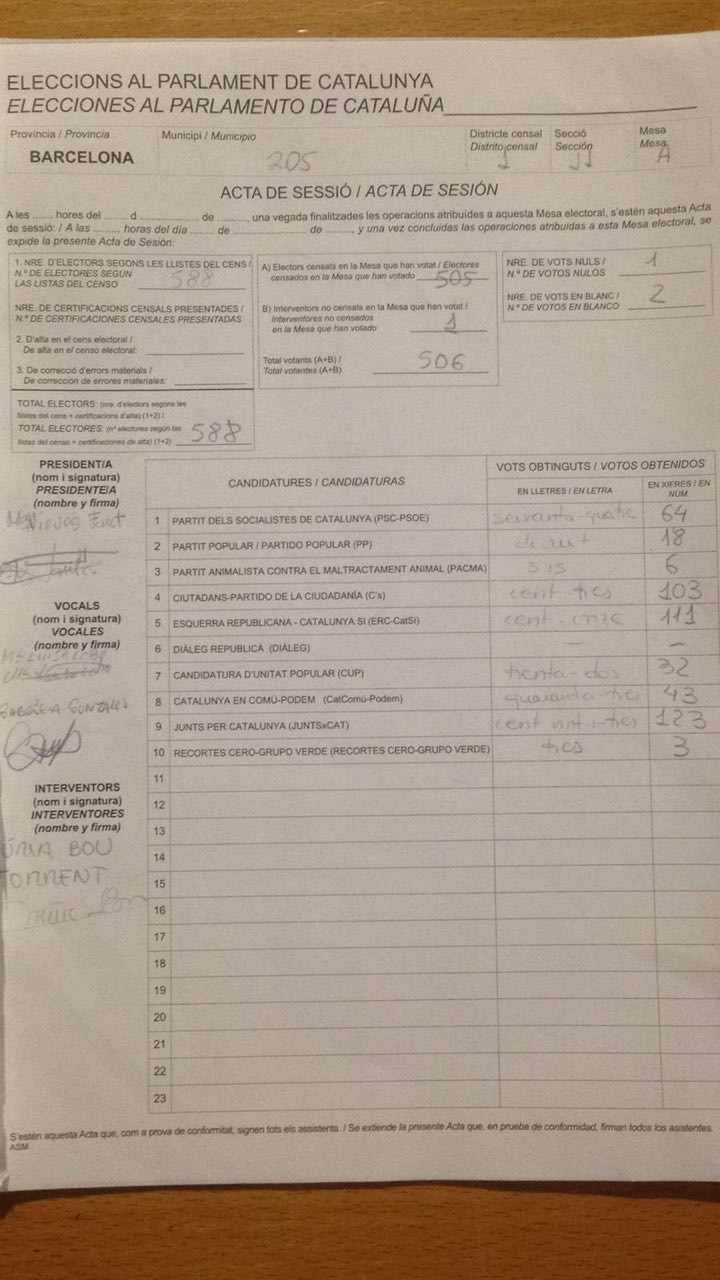 ELECCIONS AL PARLAMENT DE CATALUNYA
ELECCIONES AL PARLAMENTO DE CATALUÑA
Província / Provincia
BARCELONA
Municipi / Municipio
205
Districte censal
Distrito censal
1
Secció
Sección
11
Mesa
Mesa
A
ACTA DE SESSIÓ / ACTA DE SESIÓN
A les ....... hores del ....... d ................ de ........., una vegada finalitzades les operacions atribuïdes a aquesta Mesa electoral, s'estén aquesta Acta
de sessió: / A las ......... horas del día ....... de ................... de ........, y una vez concluidas las operaciones atribuidas a esta Mesa electoral, se
expide la presente Acta de Sesión:
1. NRE. D'ELECTORS SEGONS LES LLISTES DEL CENS /
N.º DE ELECTORES SEGÚN
LAS LISTAS DEL CENSO 588
NRE. DE CERTIFICACIONS CENSALS PRESENTADES /
N.º DE CERTIFICACIONES CENSALES PRESENTADAS
2. D'alta en el cens electoral /
De alta en el censo electoral:
3. De correcció d'errors materials /
De corrección de errores materiales:
TOTAL ELECTORS: (nre. d'electors segons les
llistes del cens + certificacions d'alta) (1+2) /
TOTAL ELECTORES: (nº electores según las
listas del censo + certificaciones de alta) (1+2) 588
A) Electors censats en la Mesa que han votat / Electores
censados en la Mesa que han votado 505
B) Interventors no censats en la Mesa que han votat /
Interventores no censados
en la Mesa que han votado 1
Total votants (A+B) /
Total votantes (A+B) 506
NRE. DE VOTS NULS /
N.º DE VOTOS NULOS 1
NRE. DE VOTS EN BLANC /
N.º DE VOTOS EN BLANCO 2
PRESIDENT/A
(nom i signatura)
PRESIDENTE/A
(nombre y firma)
VOCALS
(nom i signatura)
VOCALES
(nombre y firma)
GONZALES
INTERVENTORS
(nom i signatura)
INTERVENTORES
(nombre y firma)
BOU
TORRENT
CANDIDATURES / CANDIDATURAS
VOTS OBTINGUTS / VOTOS OBTENIDOS
EN LLETRES / EN LETRA
EN XIFRES / EN NUM
1 PARTIT DELS SOCIALISTES DE CATALUNYA (PSC-PSOE) seixanta-quatre 64
2 PARTIT POPULAR / PARTIDO POPULAR (PP) divuit 18
3 PARTIT ANIMALISTA CONTRA EL MALTRACTAMENT ANIMAL (PACMA) sis 6
4 CIUTADANS-PARTIDO DE LA CIUDADANÍA (C's) cent-tres 103
5 ESQUERRA REPUBLICANA - CATALUNYA SÍ (ERC-CatSí) cent-onze 111
6 DIÀLEG REPUBLICÀ (DIÀLEG) — —
7 CANDIDATURA D'UNITAT POPULAR (CUP) trenta-dos 32
8 CATALUNYA EN COMÚ-PODEM (CatComú-Podem) quaranta-tres 43
9 JUNTS PER CATALUNYA (JUNTSxCAT) cent vint-i-tres 123
10 RECORTES CERO-GRUPO VERDE (RECORTES CERO-GRUPO VERDE) tres 3
11
12
13
14
15
16
17
18
19
20
21
22
23
S'estén aquesta Acta que, com a prova de conformitat, signen tots els assistents. / Se extiende la presente Acta que, en prueba de conformidad, firman todos los asistentes.
ASM